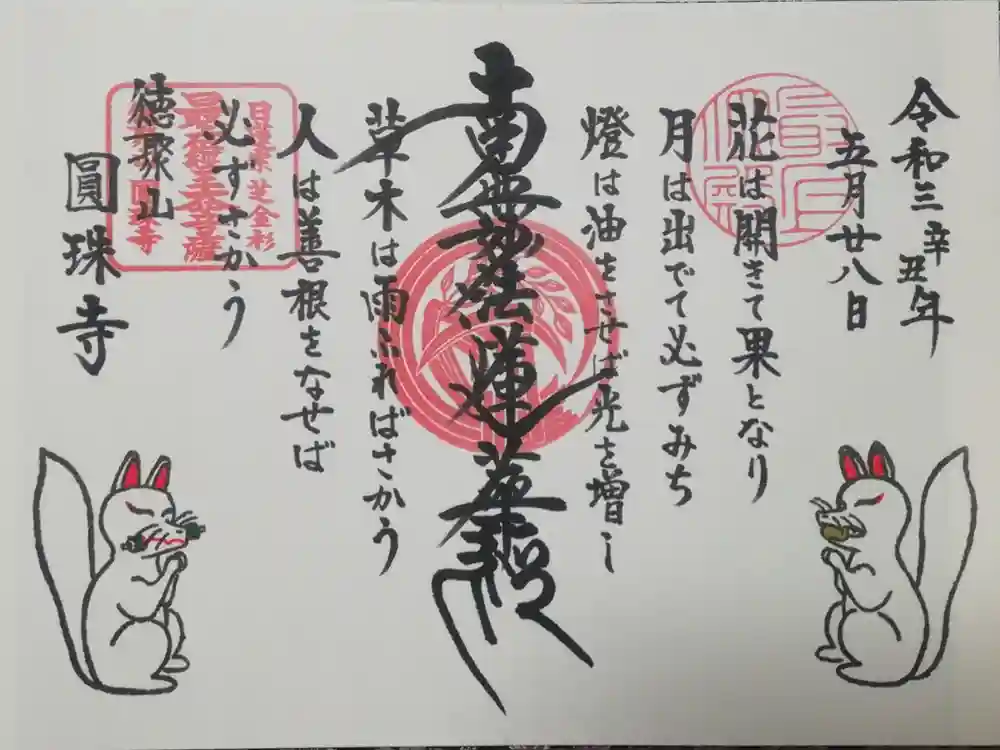 令和三辛丑年
五月廿八日
花は開きて果となり
月は出でて必ずみち
燈は油をさせば光を増し
南無妙法蓮華経
草木は雨ふればさかう
人は善根をなせば
必ずさかう
日蓮宗芝金杉
最上位経王大菩薩
圓珠寺
徳聚山
圓珠寺